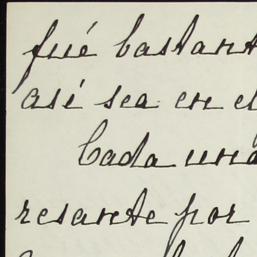 fué bastant
así sea en el
Cada una
resante por